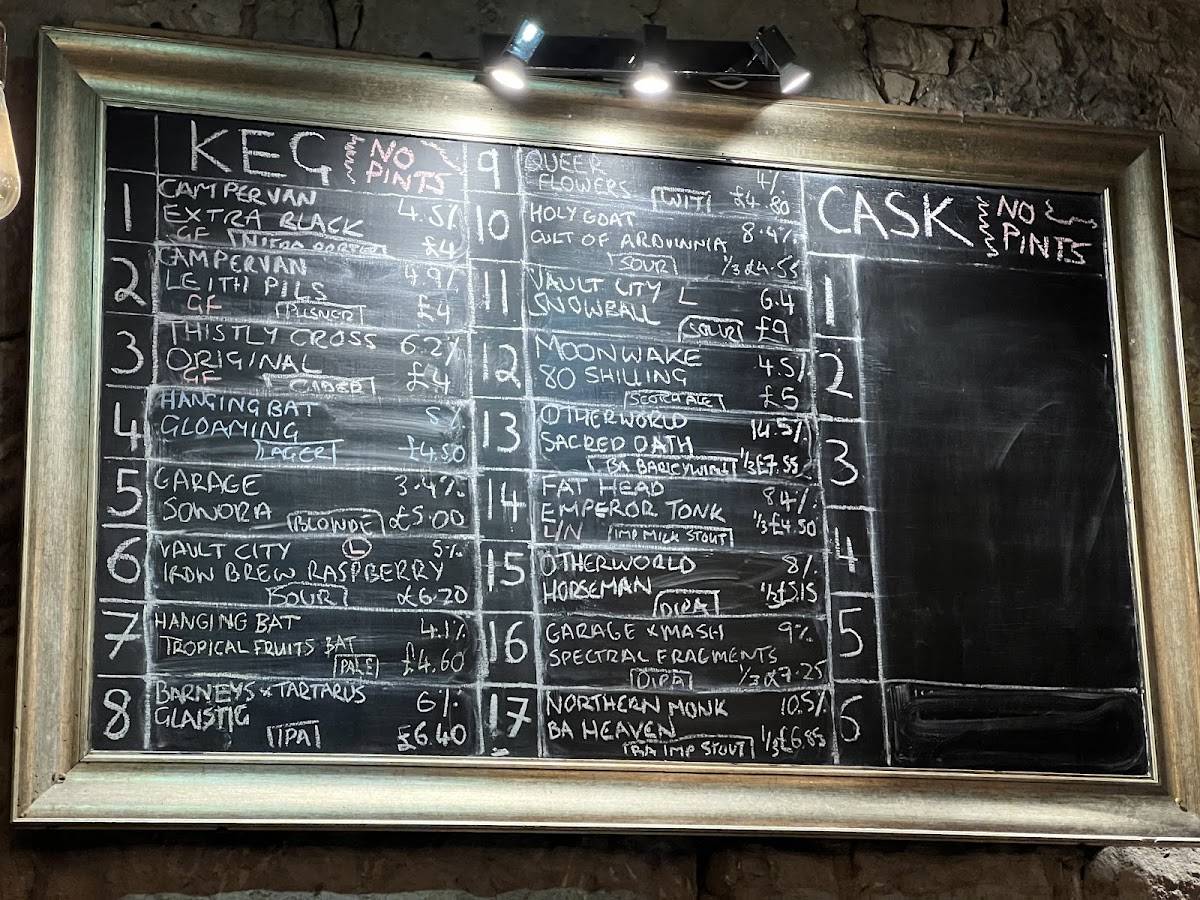 KEG NO PINTS
1 CAMPERVAN 4.5%
EXTRA BLACK
GF NITRO PORTER £4
2 CAMPERVAN 4.9%
LEITH PILS
GF PILSNER £4
3 THISTLY CROSS 6.2%
ORIGINAL
GF CIDER £4
4 HANGING BAT 5%
GLOAMING
LAGER £4.50
5 GARAGE 3.4%
SONORA BLONDE £5.00
6 VAULT CITY L 5%
IRON BREW RASPBERRY
SOUR £6.20
7 HANGING BAT 4.1%
TROPICAL FRUITS BAT
PALE £4.60
8 BARNEYS x TARTARUS 6%
GLAISTIG
IPA £6.40
9 QUEER 4%
FLOWERS WIT £4.80
10 HOLY GOAT 8.4%
CULT OF ARDUINNIA
SOUR 1/3 £4.55
11 VAULT CITY L 6.4
SNOWBALL
SOUR £9
12 MOONWAKE 4.5%
80 SHILLING
SCOTCH ALE £5
13 OTHERWORLD 14.5%
SACRED OATH
BA BARLEYWINE 1/3 £7.55
14 FAT HEAD 8.4%
EMPEROR TONK
L/N IMP MILK STOUT 1/3 £4.50
15 OTHERWORLD 8%
HORSEMAN
DIPA £5.15
16 GARAGE x MASH 9%
SPECTRAL FRAGMENTS
DIPA 1/3 £7.25
17 NORTHERN MONK 10.5%
BA HEAVEN
BA IMP STOUT 1/3 £6.85
CASK NO PINTS
1
2
3
4
5
6